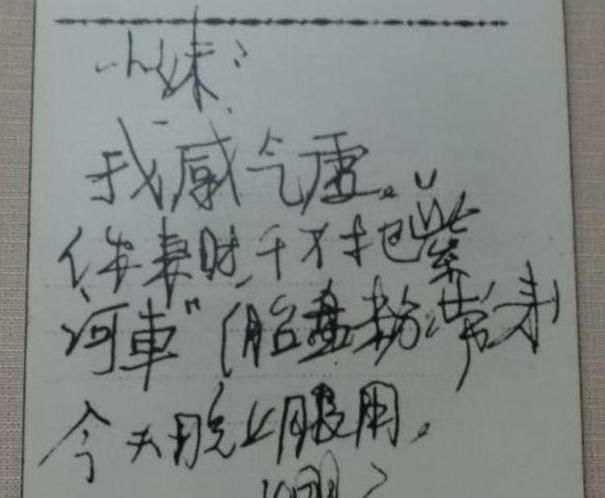 小妹:
我感气虚。
你来时,千万把"紫
河車"(胎盘粉)带来
今天晚上服用。